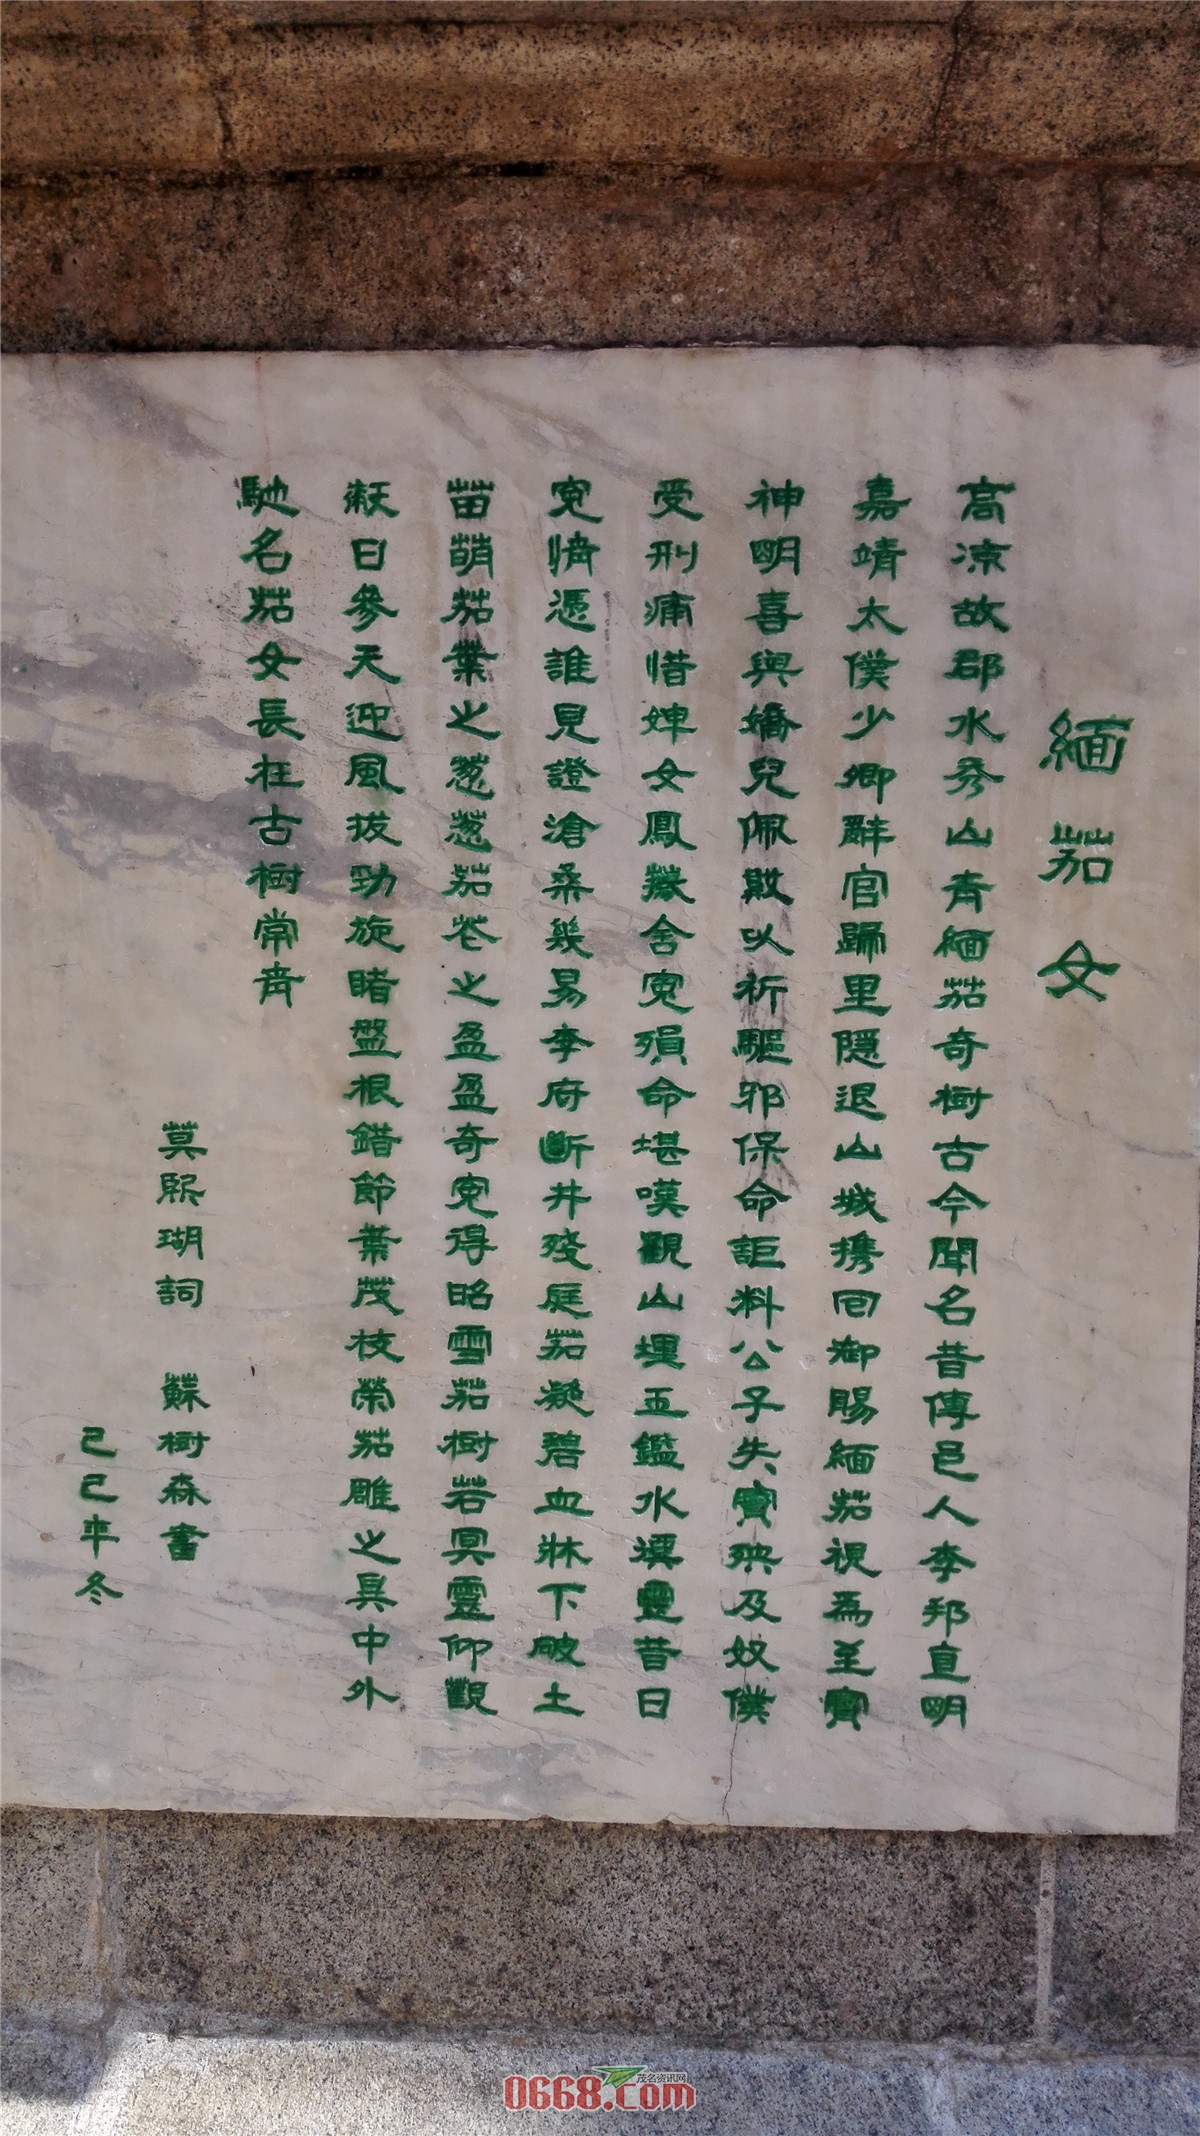 緬茄女
高凉故郡水秀山青緬茄奇樹古今聞名昔傳邑人李邦直明
嘉靖太僕少卿辭官歸里隱退山城携回御賜緬茄視為至寶
神明喜與嬌兒佩戴以祈驅邪保命詎料公子失寶殃及奴僕
受刑痛惜婢女鳳 含冤殞命堪嘆觀山埋玉鑑水 靈昔日
冤情憑誰見證滄桑幾易李府斷井殘庭茄凝碧血牀下破土
苗萌茄葉之葱葱茄花之盈盈奇冤得昭雪茄樹若冥靈仰觀
蔽日參天迎風拔勁旋睹盤根錯節葉茂枝榮茄雕之具中外
馳名茄女長在古樹常青
莫熙瑚詞 蘇樹森書
己巳年冬
茂名资讯网
0668.com